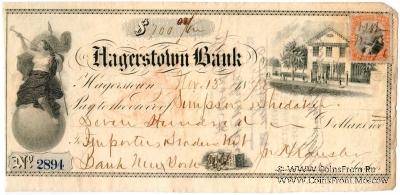 $700 00/100
Hagerstown Bank
Hagerstown Nov. 13 18
Pay to the order of Simpson Whedaker
Seven Hundred Dollars
To Importers & Traders Nat
Bank New York
No 2894
www.CoinsFrom.Ru